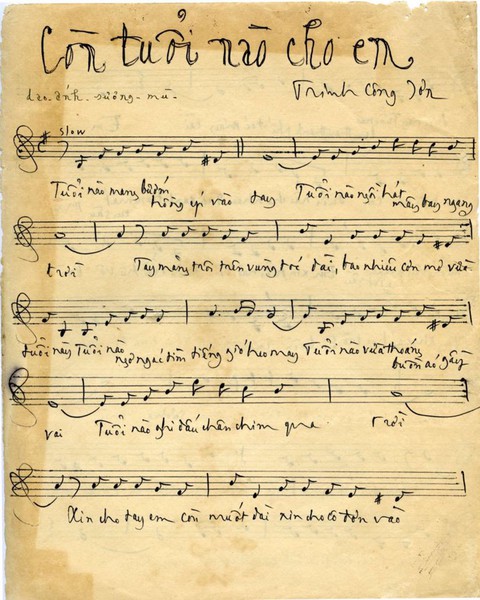 Còn tuổi nào cho em
dao-ánh-sương-mù-
Trịnh Công Sơn
slow
Tuổi nào mang bướm hồng ép vào tay Tuổi nào ngồi hát mây bay ngang
trời Tay măng trôi trên vùng tóc dài, bao nhiêu cơn mơ vào
tuổi này Tuổi nào ngơ ngác tìm tiếng gió heo may Tuổi nào vừa thoáng buồn áo gầy
vai Tuổi nào ghi dấu chân chim qua trời
Xin cho tay em còn muốt dài xin cho cô đơn vào